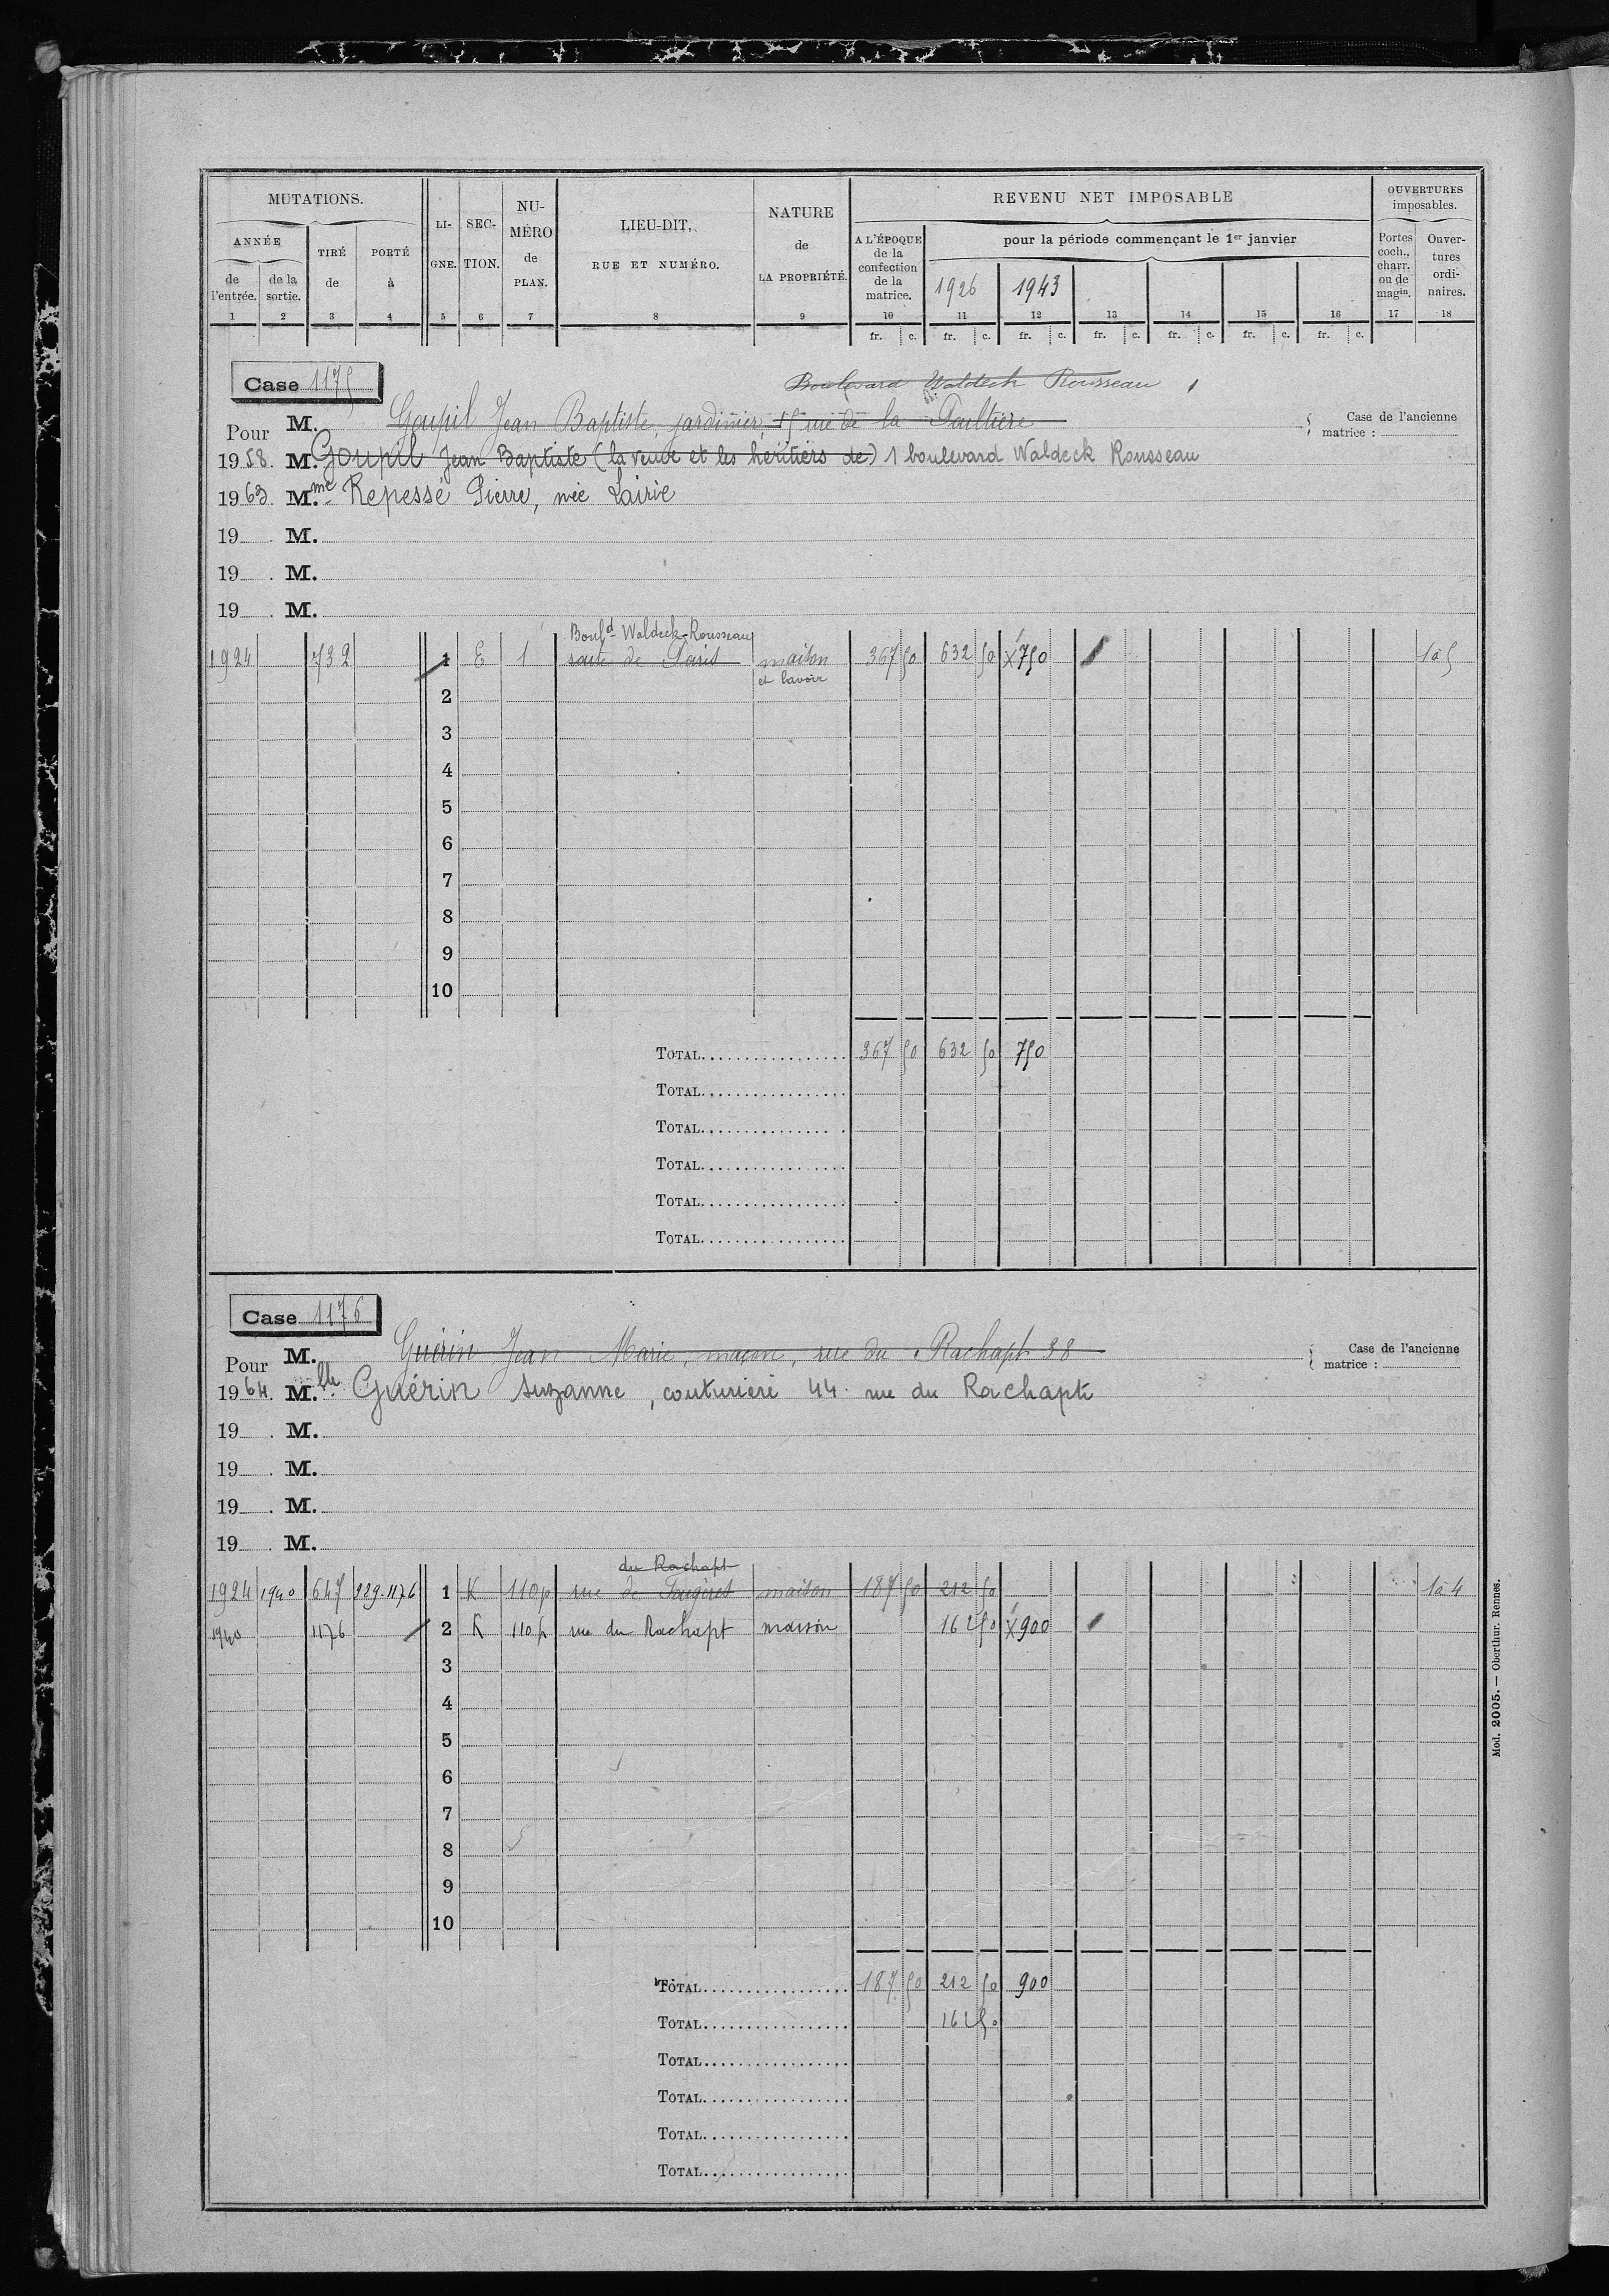 MUTATIONS.
ANNÉE
de l'entrée.
de la sortie.
TIRÉ de
PORTÉ à
LI-GNE.
SEC-TION.
NU-MÉRO de PLAN.
LIEU-DIT, RUE ET NUMÉRO.
NATURE de LA PROPRIÉTÉ.
REVENU NET IMPOSABLE
A L'ÉPOQUE de la confection de la matrice.
pour la période commençant le 1er janvier
1926 1943
OUVERTURES imposables.
Portes coch., charr. ou de magin.
Ouver-tures ordi-naires.
1 2 3 4 5 6 7 8 9 10 11 12 13 14 15 16 17 18
fr. c. fr. c. fr. c. fr. c. fr. c. fr. c. fr. c.
Case 1175
Boulevard Waldeck Rousseau 1
Pour M. Goupil Jean Baptiste, jardinier, 15 rue de la Paultière
Case de l'ancienne matrice :
1958. M. Goupil Jean Baptiste (la veuve et les héritiers de) 1 boulevard Waldeck Rousseau
1963. M.me Repessé Pierre, née Lairie
19 . M.
19 . M.
19 . M.
Bould Waldeck-Rousseau
1924 732 1 E 1 route de Paris maison 367 50 632 50 x750 1à5
et lavoir
2
3
4
5
6
7
8
9
10
TOTAL 367 50 632 50 750
TOTAL
TOTAL
TOTAL
TOTAL
TOTAL
Case 1176
Pour M. Guérin Jean Marie, maçon, rue du Rachapt 38
Case de l'ancienne matrice :
1964. M.lle Guérin Suzanne, couturière 44 rue du Rachapt
19 . M.
19 . M.
19 . M.
19 . M.
du Rachapt
1924 1940 647 229.1176 1 K 110p rue de Fougères maison 187 50 212 50 1à4
1940 1176 2 K 110p rue du Rachapt maison 162 50 x900
3
4
5
6
7
8
9
10
TOTAL 187 50 212 50 900
TOTAL 162 50
TOTAL
TOTAL
TOTAL
TOTAL
Mod. 2005. — Oberthur. Rennes.